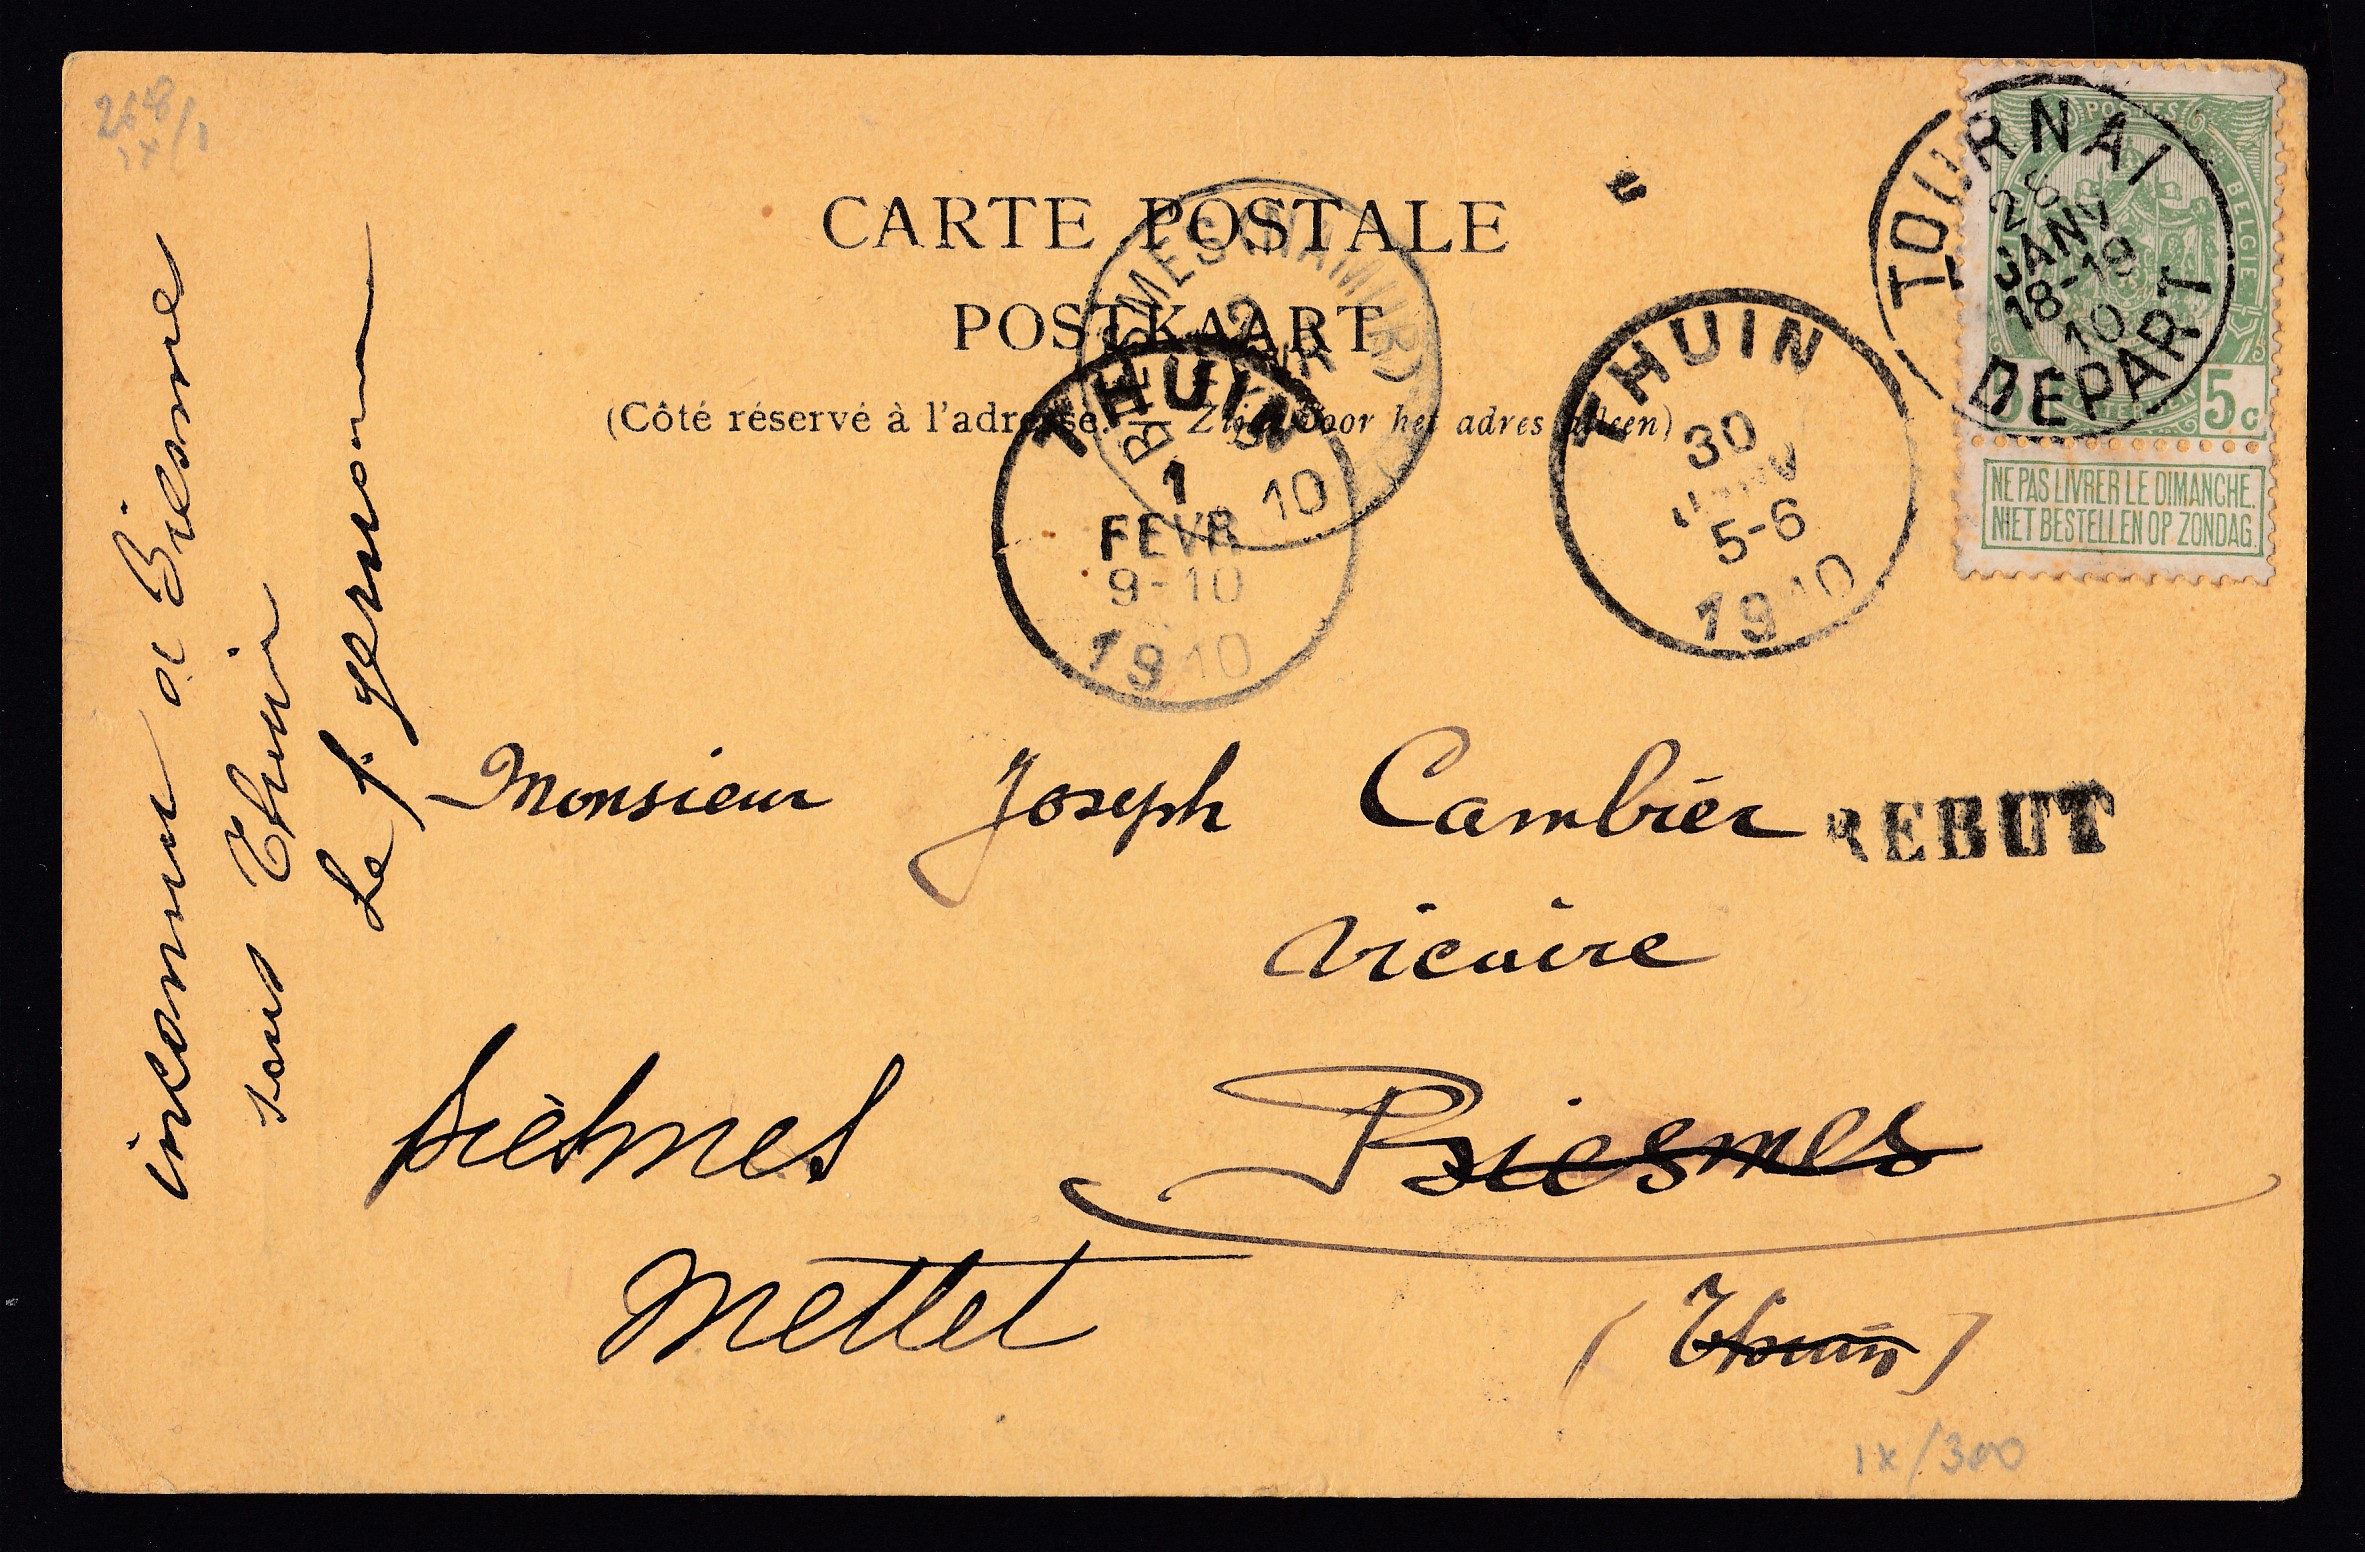 CARTE POSTALE
POSTKAART
(Côté réservé à l'adresse. — Zijde voor het adres alleen)
POSTES
BELGIE
5c
NE PAS LIVRER LE DIMANCHE.
NIET BESTELLEN OP ZONDAG.
TOURNAI
JANV
18-19
10
DEPART
THUIN
30
JANV
5-6
1910
BIESMES (NAMUR)
2
FEVR
10
THUIN
1
FEVR
9-10
1910
inconnu a Biesme
sous Thuin
Le f. germain
Monsieur Joseph Cambier
REBUT
Vicaire
Biesmes
(Thuin)
biesmes
Mettet
ix/300